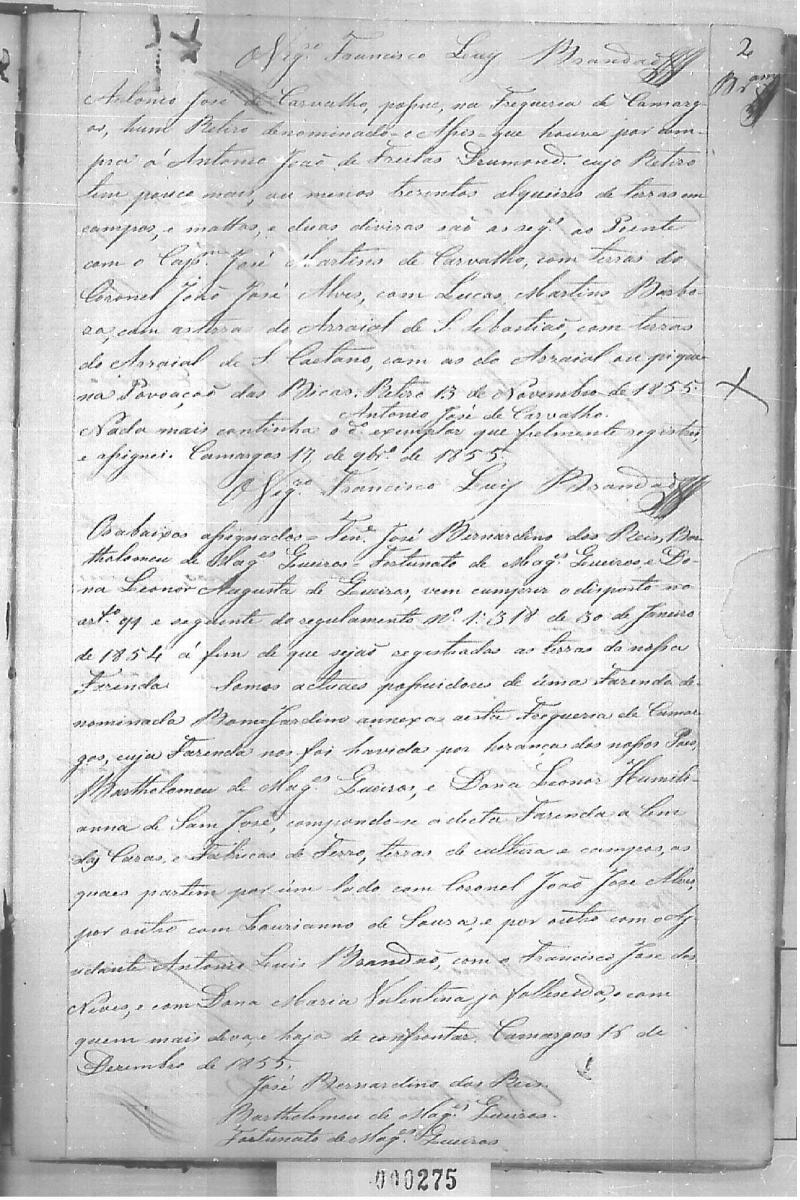 O Vig.ro Francisco Luiz Brandaõ
2
Antonio José de Carvalho, poſsue, na Freguesia de Camarg-
os, hum Retiro denominado = Aſsis = que houve por com-
pra á Antonio João de Freitas Drumond. cujo Retiro
tem pouco mais, ou menos trezentos alqueires de terras em
campos, e mattas, e duas divizas saõ as seg.s ao Poente
com o Cap.m José Martins de Carvalho, com terras do
Coronel Joaõ José Alves, com Lucas Martins Barbo-
za, com as terras do Arraial de S. Sebastiaõ, com terras
do Arraial de S. Caetano, com as do Arraial ou pique-
na Povoaçaõ das Bicas. Retiro 13 de Novembro de 1855.
Antonio José de Carvalho.
Nada mais continha o d.o exemplar que fielmente registrei
e aſsignei. Camargos 17 de 9br.o de 1855.
O Vig.ro Francisco Luiz Brandaõ
Os abaixos aſsignados = Ten.e José Bernardino dos Reis, Bar-
tholomeu de Mag.es Queiros = Fortunato de Mag.s Queiros, e Do-
na Leonor Augusta de Queiros, vem cumprir o disposto no
art.o 91 e seguente do regulamento N.o 1:318 de 30 de Janeiro
de 1854 á fim de que sejaõ registradas as terras da noſsa
Fazenda Somos actuaes poſsuidores de uma Fazenda de-
nominada Bom Jardino annexa a esta Freguesia de Camar-
gos, cuja Fazenda nos foi havida por heranca dos noſsos Pais,
Bartholomeu de Mag.es Queiros, e Dona Leonor Humili-
anna de Sam José, compondo-se a dicta Fazenda a lem
das Cazas, e Fabricas de Ferro, terras de cultura e campos, as
quaes partem por úm lado com Coronel Joaõ Jose Alves,
por outro com Laurianno de Souza, e por outro com o Aj-
udante Antonio Luis Brandaõ, com o Francisco Jose das
Neves, e com Dona Maria Valentina ja fallescida, e com
quem mais deva, e haja de confrontar. Camargos 15 de
Dezembro de 1855.
José Bernardino dos Reis
Bartholomeu de Mag.es Queiros.
Fortunato de Mag.s Queiros
000275